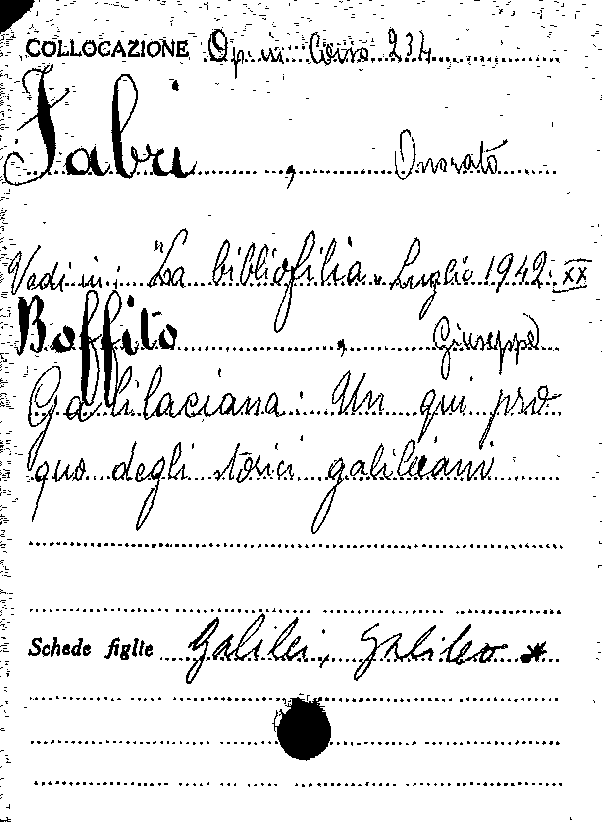 COLLOCAZIONE Op. in Corso 234
Fabri, Onorato
Vedi in: "La bibliofilia" Luglio 1942. XX
Boffito, Giuseppe
Galilaciana: Un qui pro
quo degli storici galileiani
Schede figlie Galilei, Galileo *